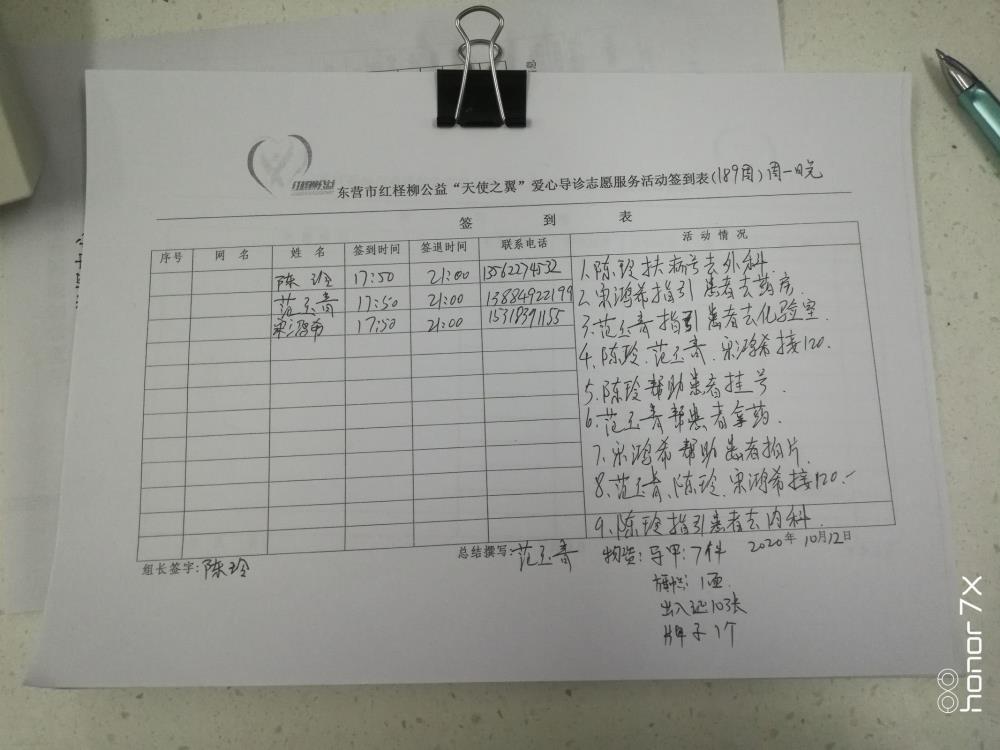 红柽柳公益
东营市红柽柳公益“天使之翼”爱心导诊志愿服务活动签到表(189周)周一日元
签 到 表
序号 网 名 姓 名 签到时间 签退时间 联系电话 活 动 情 况
陈 玲 17:50 21:00 13562274532
范玉青 17:50 21:00 13884922199
宋鸿希 17:50 21:00 15318391155
1.陈玲扶病号去外科.
2.宋鸿希指引患者去药房.
3.范玉青指引患者去化验室.
4.陈玲.范玉青.宋鸿希接120.
5.陈玲帮助患者挂号.
6.范玉青帮患者拿药.
7.宋鸿希帮助患者拍片.
8.范玉青、陈玲、宋鸿希接120.
9.陈玲指引患者去内科.
组长签字:陈玲 总结撰写:范玉青 物资:马甲:7件 2020年10月12日
旗帜:1面.
出入证10张
牌子1个
honor 7X